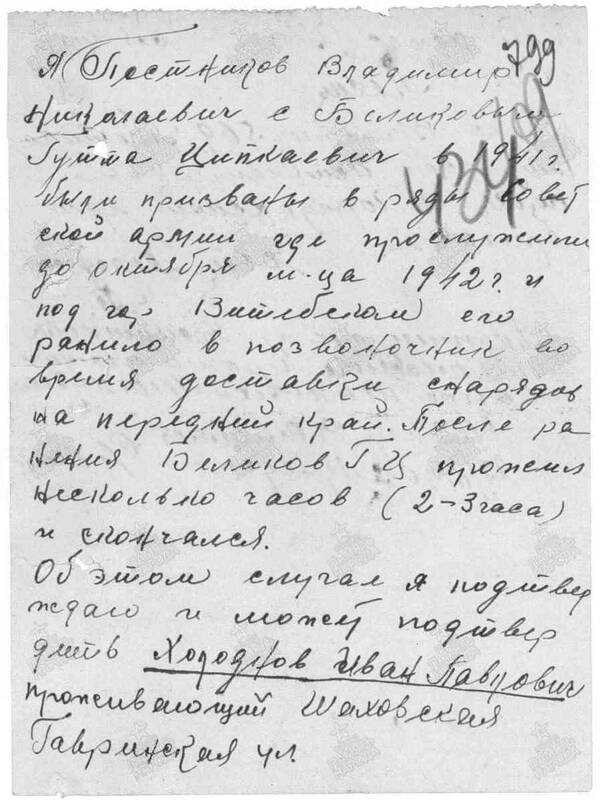 Я Постников Владимир 799
Николаевич с Беликовым
Гутта Ципкаевич в 1941 г.
были призваны в ряды Совет
ской армии где прослужили
до октября м-ца 1942 г. и
под гор. Витебском его
ранило в позвоночник во
время доставки снарядов
на передний край. После ра
нения Беликов Г Ц прожил
несколько часов (2-3 часа)
и скончался.
Об этом случаи я подтвер
ждаю и может подтвер
дить Холодков Иван Павлович
проживающий Шаховская
Гавринская ул.